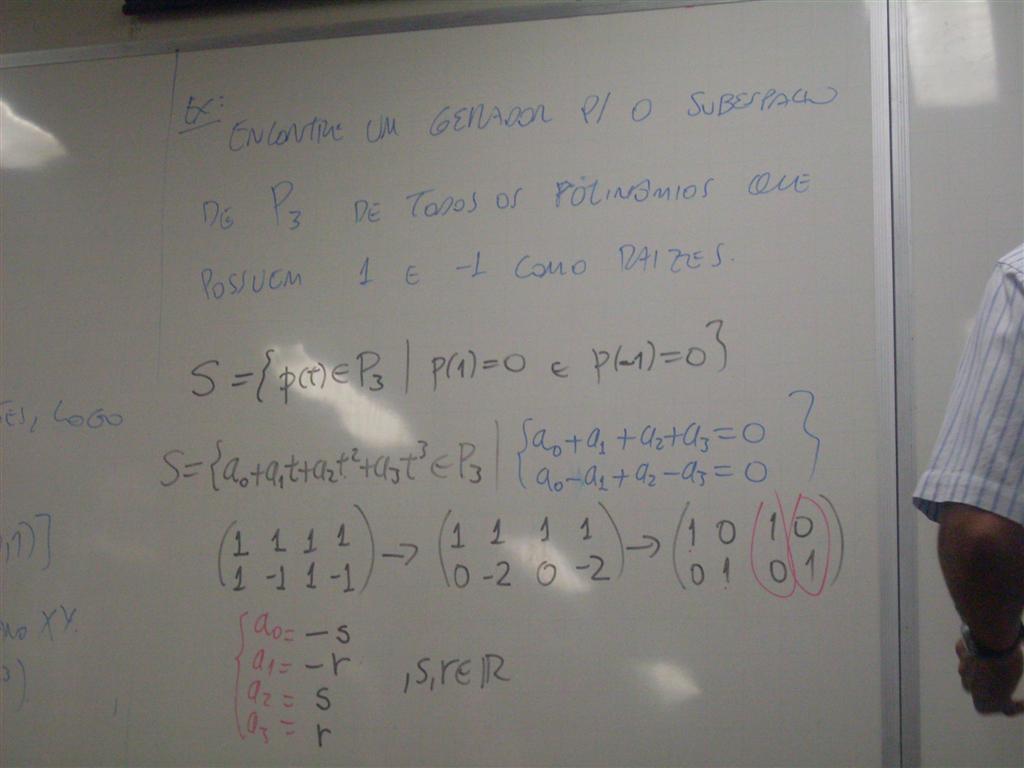 Ex:
ENCONTRE UM GERADOR P/ O SUBESPAÇO
DE P₃ DE TODOS OS POLINÔMIOS QUE
POSSUEM 1 E -1 COMO RAIZES.
S = { p(t) ∈ P₃ | p(1) = 0 e p(-1) = 0 }
S = { a₀ + a₁t + a₂t² + a₃t³ ∈ P₃ | { a₀ + a₁ + a₂ + a₃ = 0
a₀ - a₁ + a₂ - a₃ = 0 }
( 1 1 1 1 ) → ( 1 1 1 1 ) → ( 1 0 1 0 )
( 1 -1 1 -1 ) ( 0 -2 0 -2 ) ( 0 1 0 1 )
{ a₀ = -s
a₁ = -r , s, r ∈ ℝ
a₂ = s
a₃ = r
, LOGO
,1)]
XY.
³)